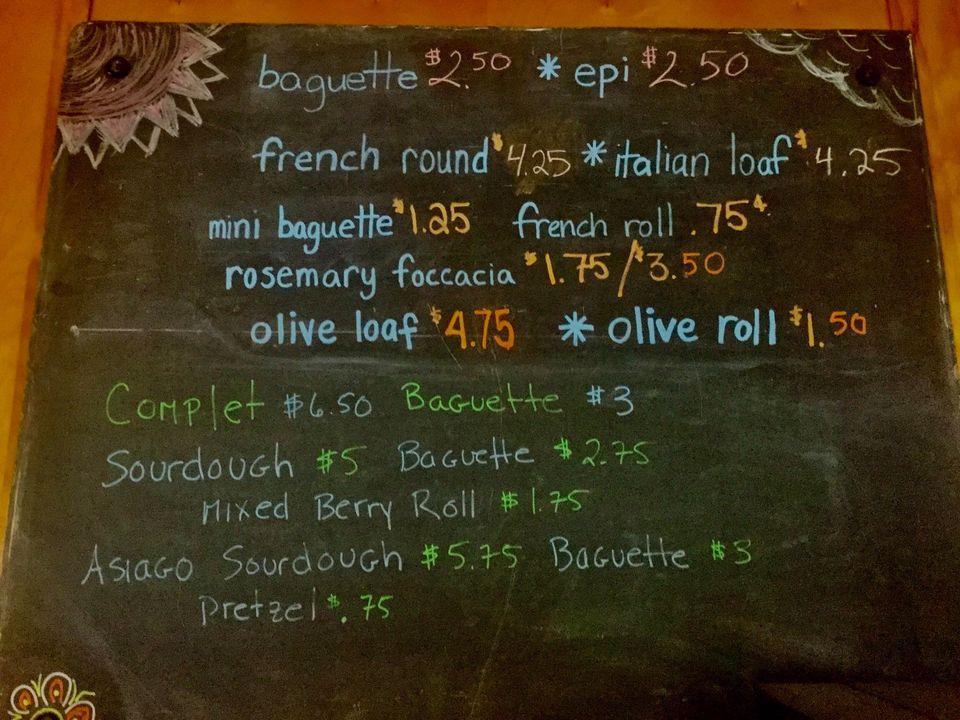 baguette $2.50 * epi $2.50
french round $4.25 * italian loaf $4.25
mini baguette $1.25 french roll .75¢
rosemary foccacia $1.75/$3.50
olive loaf $4.75 * olive roll $1.50
Complet $6.50 Baguette $3
Sourdough $5 Baguette $2.75
Mixed Berry Roll $1.75
Asiago Sourdough $5.75 Baguette $3
Pretzel $.75